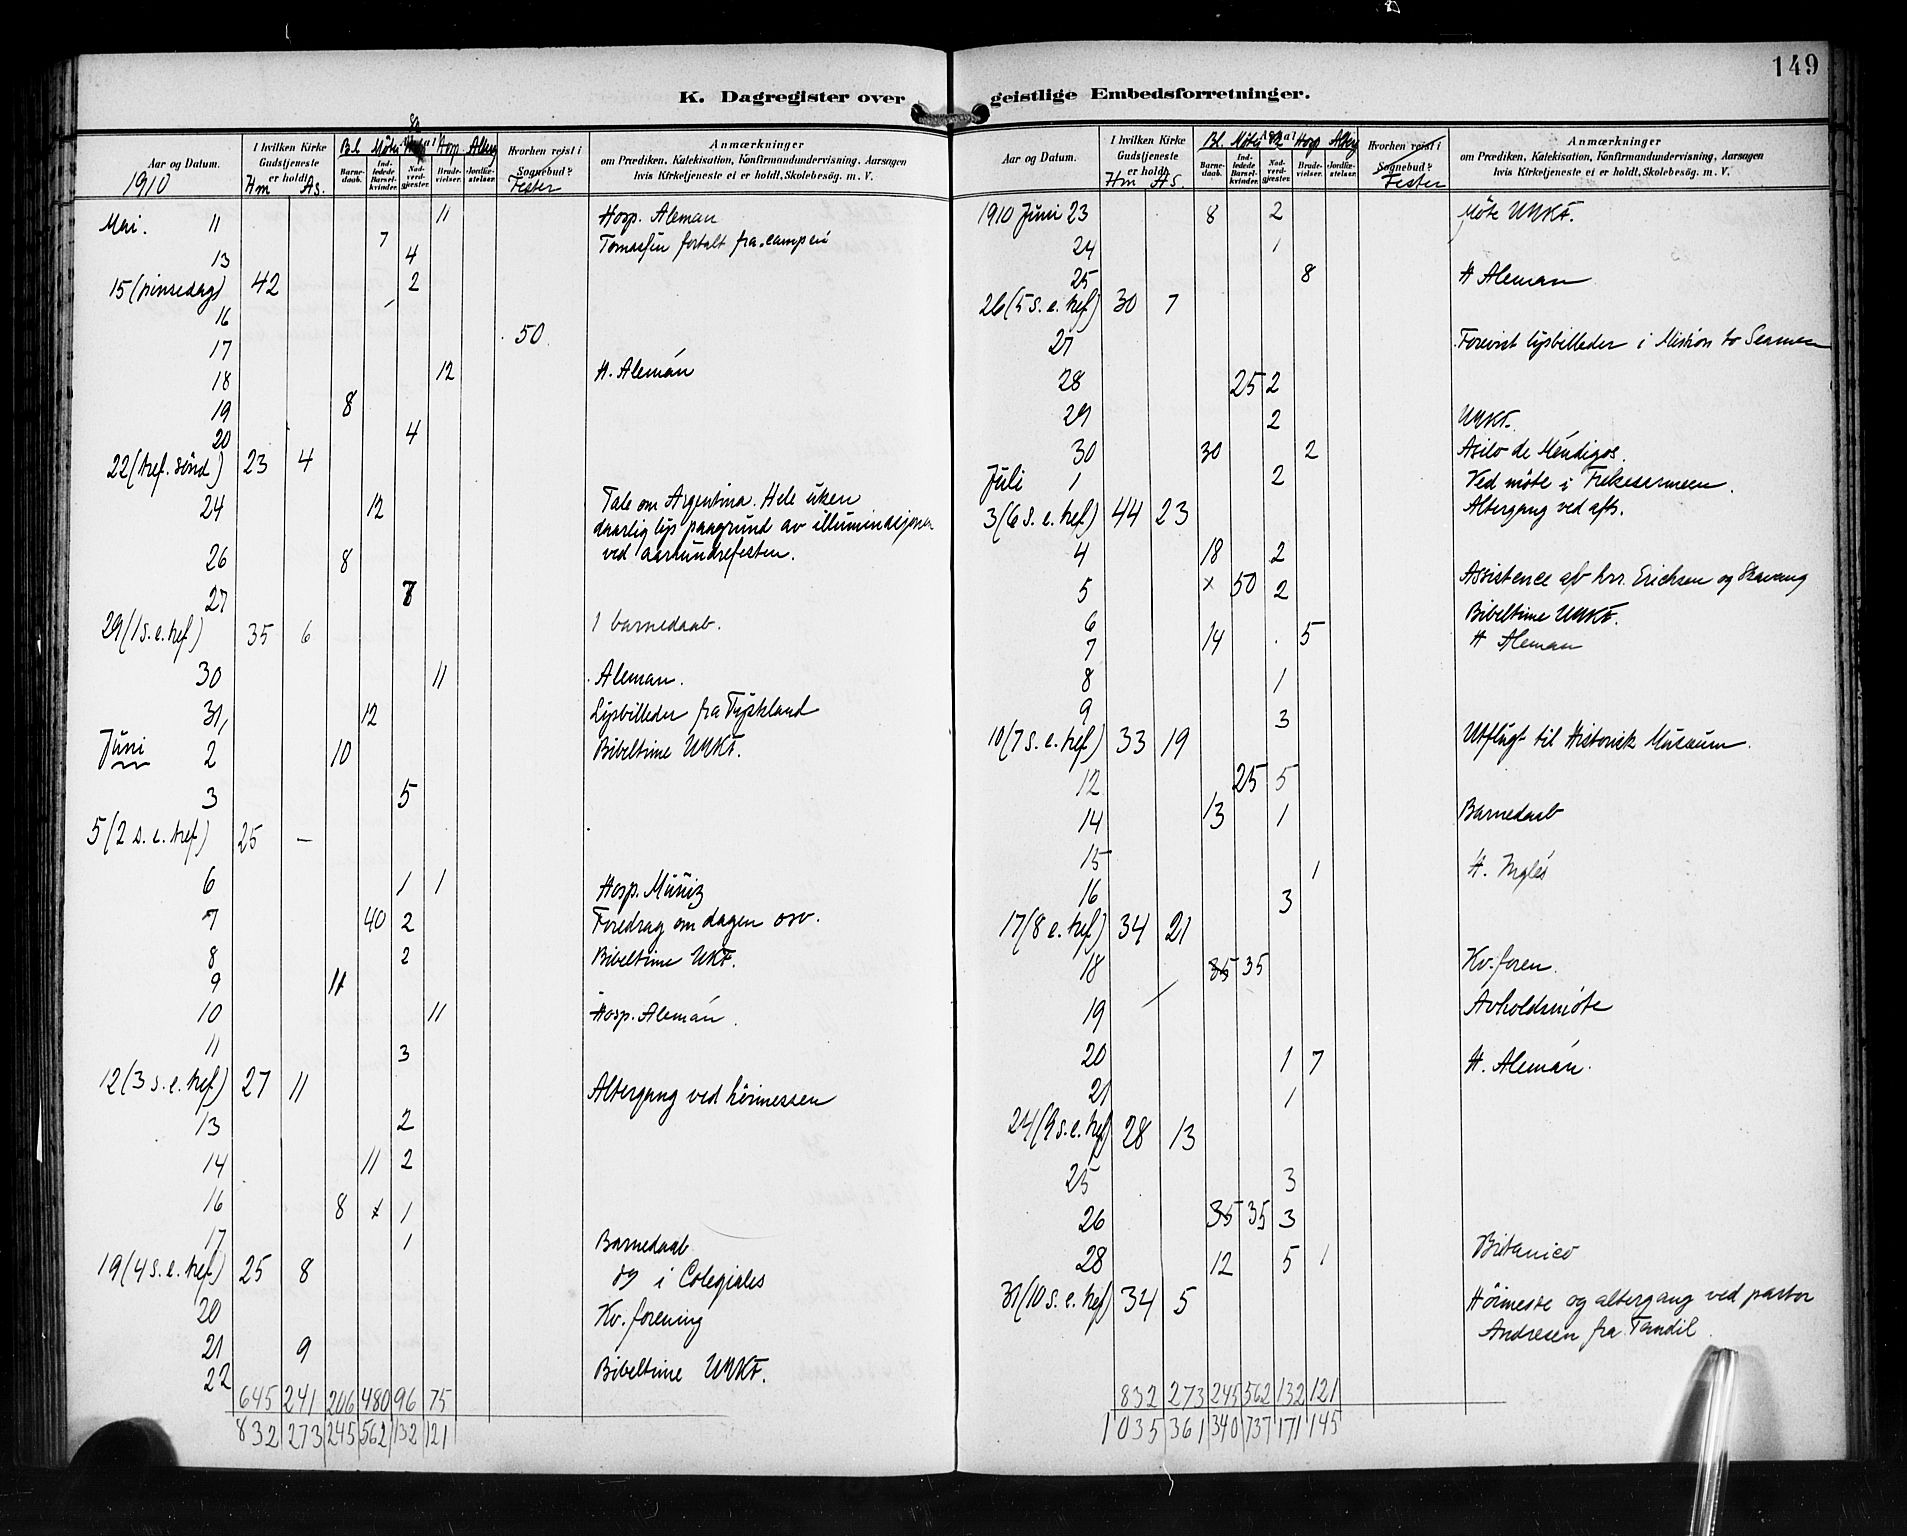 149
K. Dagregister over geistlige Embedsforretninger.
Aar og Datum.
1910
I hvilken Kirke Gudstjeneste er holdt.
Hm As.
Antal
Bl Møter Sb Hosp. Alterg
Barnedaab. Indledede Barselkvinder. Nadverdgjester. Brudevielser. Jordfæstelser.
Hvorhen reist i Sognebud?
Fester
Anmærkninger
om Prædiken, Katekisation, Konfirmandundervisning, Aarsagen
hvis Kirketjeneste ei er holdt, Skolebesøg. m. V.
Mai. 11 11 Hosp. Aleman
7 fortalt fra campen
13 4
15 (pinsedag) 42 2
16
17 50
18 12 H. Alemán
19 8
20 4
22 (tref. sönd) 23 4
24 12 Tale om Argentina. Hele uken
daarlig lys paagrund av illuminasjonen
ved aarhundrefesten.
26 8
27 7
29 (1 s. e. tref) 35 6 1 barnedaab.
30 11 Aleman.
31, 12 Lysbilleder fra Tyskland
Juni 2 10 Bibeltime UMKF.
3 5
5 (2 s. e. tref) 25 —
6 1 1 Hosp. Muñiz
7 40 2 Foredrag om dagen osv.
8 2 Bibeltime UKF.
9 11
10 11 Hosp. Alemán.
11 3
12 (3 s. e. tref) 27 11 Altergang ved höimessen
13 2
14 11 2
16 8 x 1
17 1 Barnedaab
19 (4 s. e. tref) 25 8 og i Colegiales
20 Kv. forening
21 9
22 Bibeltime UMKF.
645 241 206 480 96 75
832 273 245 562 132 121
Aar og Datum.
I hvilken Kirke Gudstjeneste er holdt.
Hm As.
Antal
Bl. Møter Sb Hosp Alterg
Barnedaab. Indledede Barselkvinder. Nadverdgjester. Brudevielser. Jordfæstelser.
Hvorhen reist i Sognebud?
Fester
Anmærkninger
om Prædiken, Katekisation, Konfirmandundervisning, Aarsagen
hvis Kirketjeneste ei er holdt, Skolebesøg. m. V.
1910 Juni 23 8 2 Møte UMKF.
24 1
25 8 H Aleman
26 (5 s. e. tref) 30 7
27 Forevist lysbilleder i Mission to Seamen
28 25 2
29 2 UMKF.
30 30 2 Asilo de Méndigos.
Juli 1 2 Ved møte i Frelsesarmeen.
3 (6 s. e. tref) 44 23 Altergang ved afts.
4 18 2
5 x 50 2 Assistence af hrr. Erichsen og Skavang
6 Bibeltime UMKF.
7 14 5 H Aleman
8 1
9 3
10 (7 s. e. tref) 33 19 Utflugt til Historisk Museum.
12 25 5
14 13 1 Barnedaab
15 1 H. Inglés
16 3
17 (8 e. tref) 34 21
18 35 35 Kv. foren.
19 Avholdsmöte
20 1 7 H. Alemán.
21 1
24 (9 s. e. tref) 28 13
25 3
26 35 35 3
28 12 5 1 Britanico
31 (10 s. e. tref) 34 5 Höimesse og altergang ved pastor
Andresen fra Tandil.
832 273 245 562 132 121
1035 361 340 737 171 145